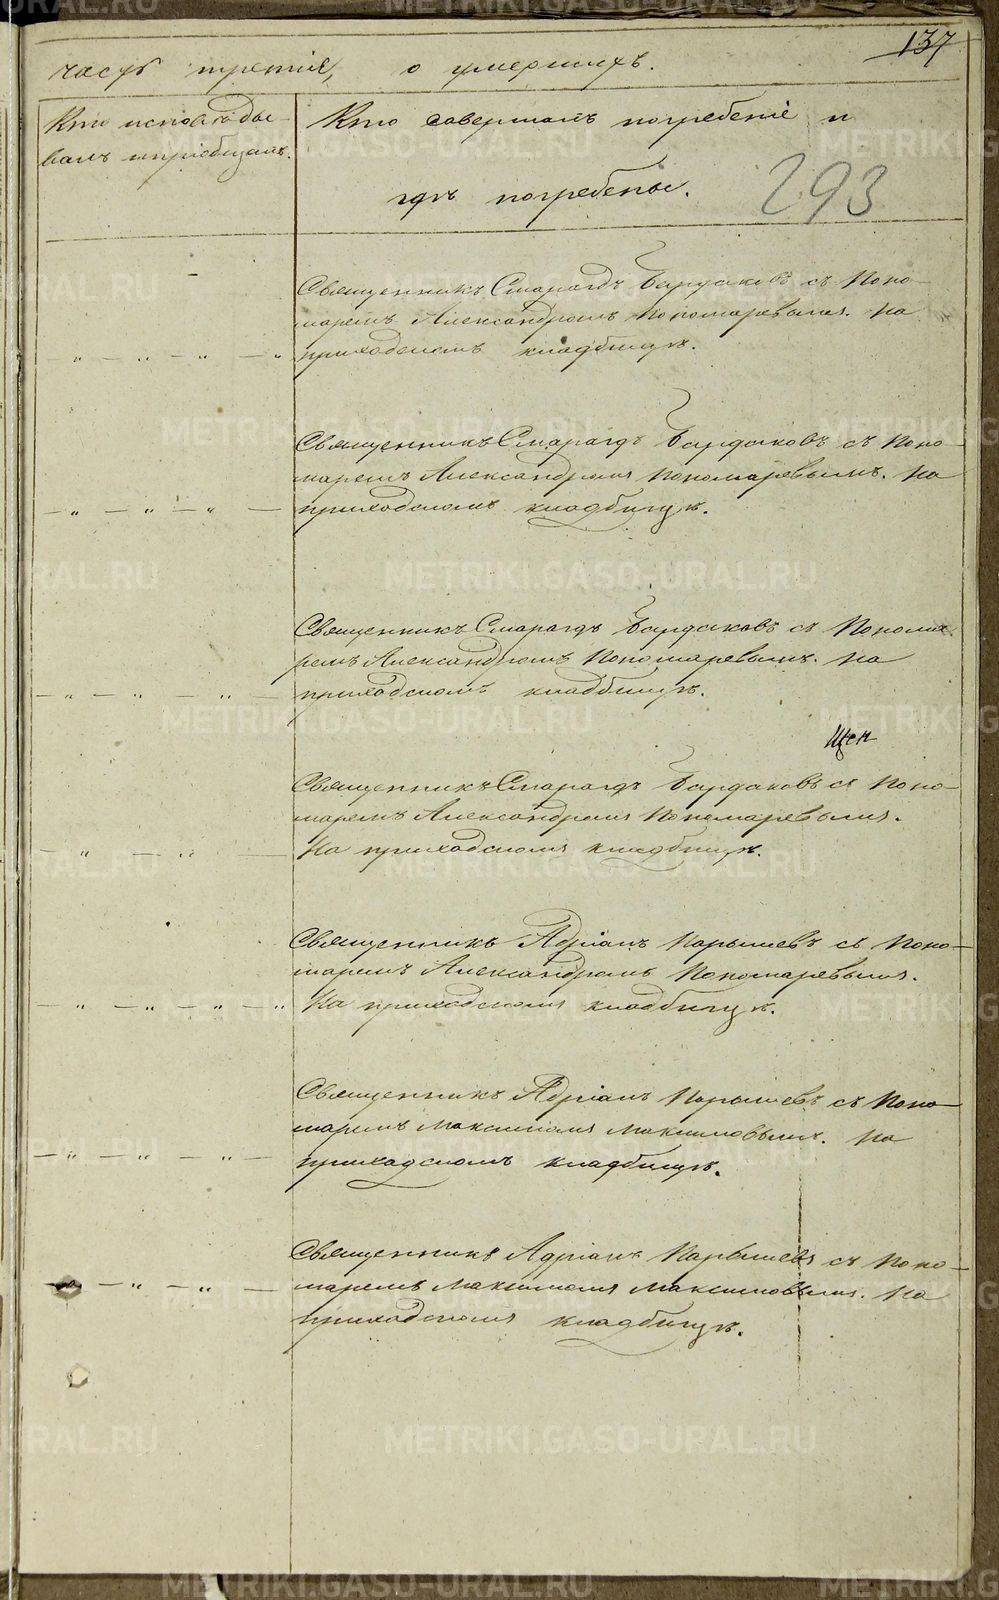 137
часть третія, о умершихъ.
Кто исповѣды-
валъ и пріобщалъ.
Кто совершалъ погребеніе и
гдѣ погребены.
293
Священникъ Смарагдъ Бардаковъ съ Поно-
маремъ Александромъ Пономаревымъ. На
приходскомъ кладбищѣ.
Священникъ Смарагдъ Бардаковъ съ Поно-
маремъ Александромъ Пономаревымъ. На
приходскомъ кладбищѣ.
Священникъ Смарагдъ Бардаковъ съ Понома-
ремъ Александромъ Пономаревымъ. На
приходскомъ кладбищѣ.
Священникъ Смарагдъ Бардаковъ съ Поно-
маремъ Александромъ Пономаревымъ.
На приходскомъ кладбищѣ.
Священникъ Адріанъ Парышевъ съ Поно-
маремъ Александромъ Пономаревымъ.
На приходскомъ кладбищѣ.
Священникъ Адріанъ Парышевъ съ Поно-
маремъ Максимомъ Максимовымъ. На
приходскомъ кладбищѣ.
Священникъ Адріанъ Парышевъ съ Поно-
маремъ Максимомъ Максимовымъ. На
приходскомъ кладбищѣ.
METRIKI.GASO-URAL.RU